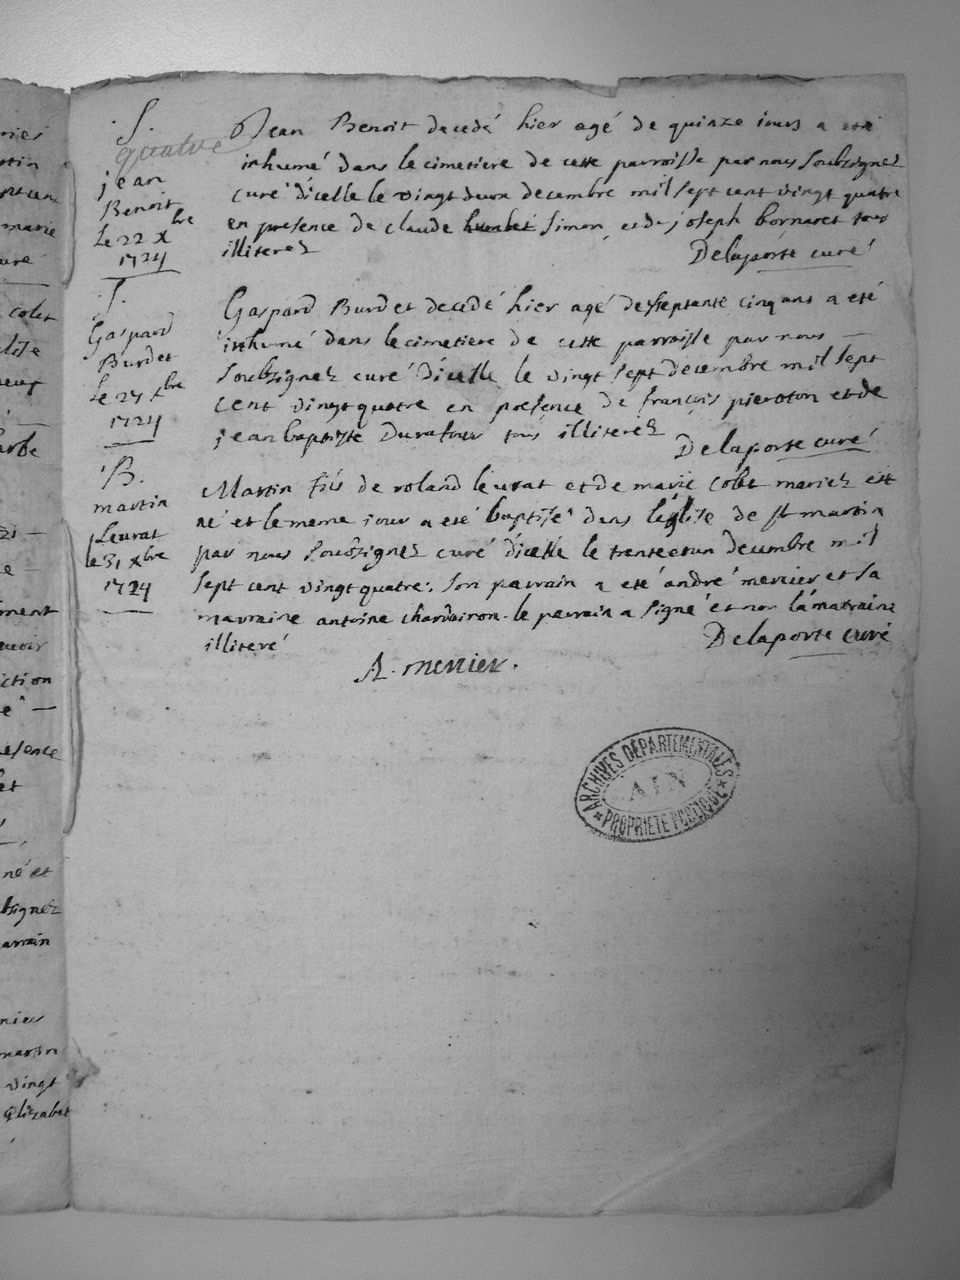 S.
quatre
jean
Benoit
Le 22 xbre
1724
Jean Benoit decedé hier agé de quinze iours a eté
inhumé dans le cimetiere de cette parroisse par nous soubsignez
curé dicelle le vingt deux decembre mil sept cent vingt quatre
en presence de claude humbet simon et de joseph bornaret tous
illiterez
Delaporte curé
S.
Gaspard
Burdet
Le 27 xbre
1724
Gaspard Burdet decedé hier agé de septante cinq ans a eté
inhumé dans le cimetiere de cette parroisse par nous
soubsignez curé dicelle le vingt sept decembre mil sept
cent vingt quatre en presence de françois pieroton et de
jean baptiste Durafour tous illiterez
Delaporte curé
B.
martin
Leurat
le 31 xbre
1724
Martin fils de roland leurat et de marie Colet mariez est
né et le meme iour a eté baptisé dans léglise de st martin
par nous soubsignez curé dicelle le trente et un decembre mil
sept cent vingt quatre. son parrain a eté andré mercier et sa
marraine antoine charvoiron. le parrain a signé et non la marraine
illiteré
Delaporte curé
A. mercier.
ARCHIVES DÉPARTEMENTALES
AIN
PROPRIETE PUBLIQUE
rtin
marie
curé
colet
né et
bsignez
vingt